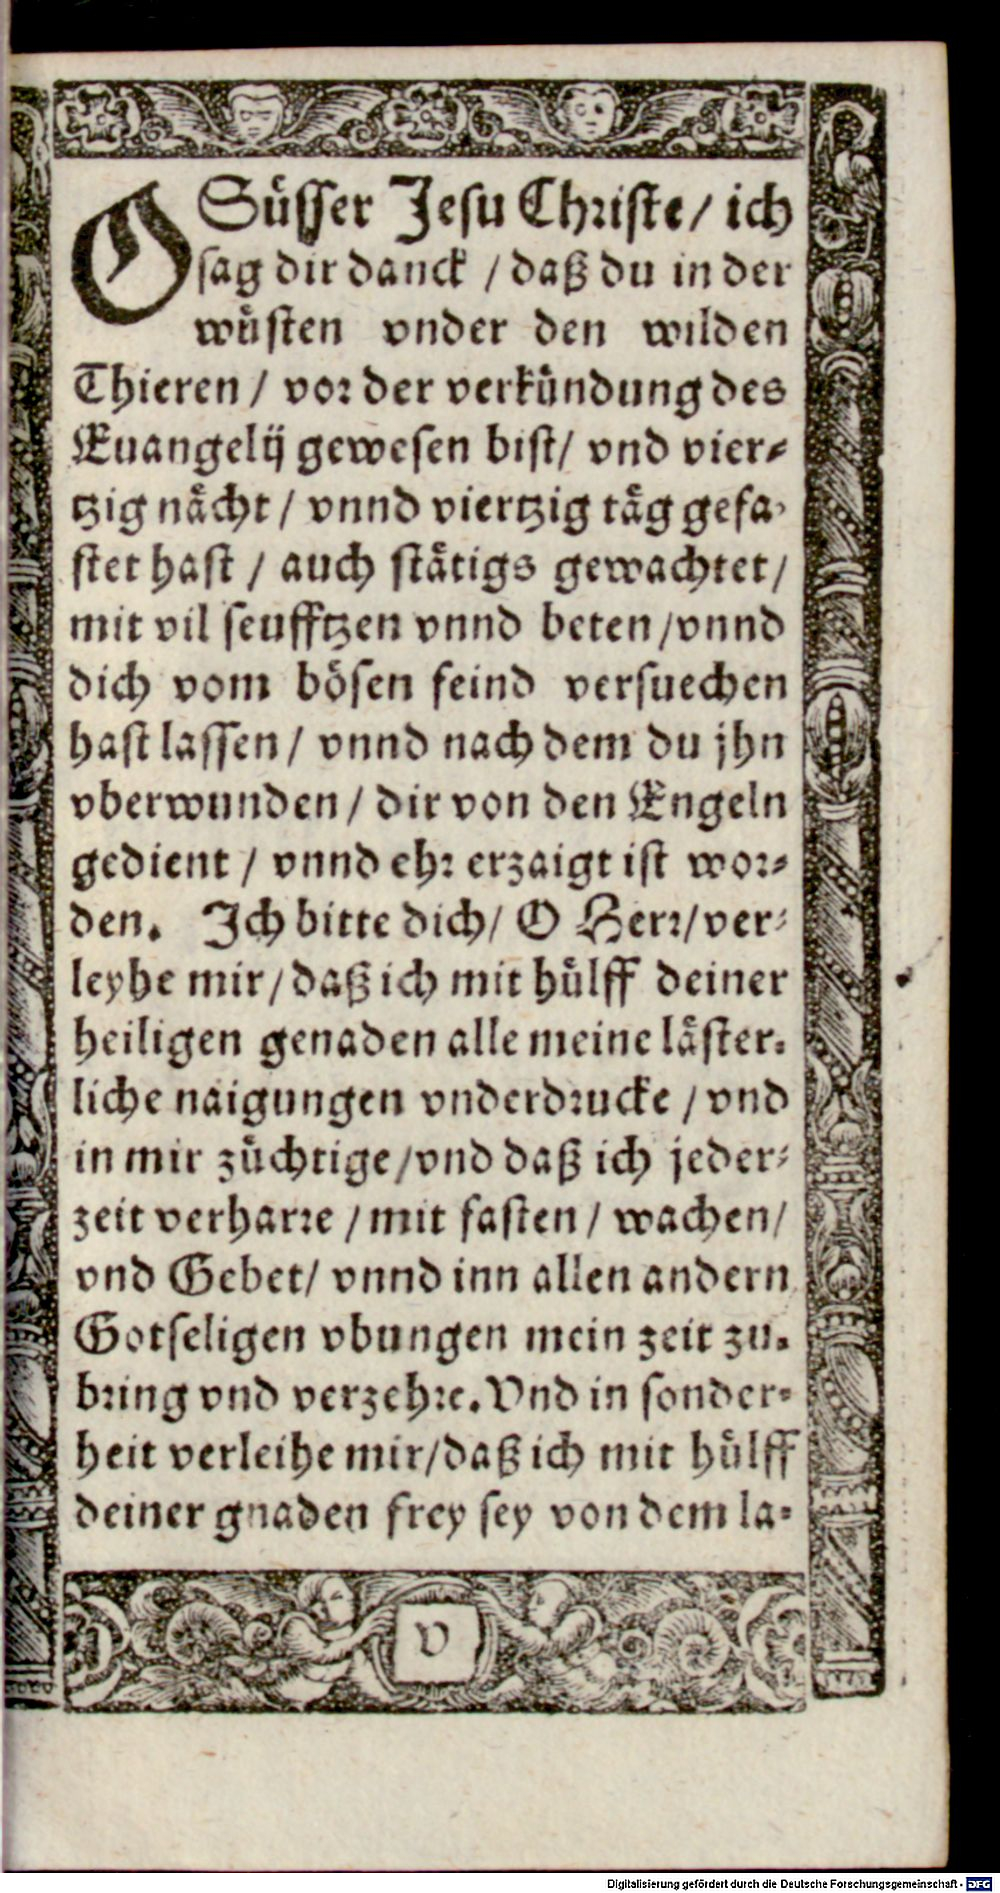 O Süsser Jesu Christe/ ich
sag dir danck / daß du in der
wüsten vnder den wilden
Thieren / vor der verkündung des
Euangelij gewesen bist/ vnd vier-
tzig nächt / vnnd viertzig täg gefa-
stet hast / auch stätigs gewachtet/
mit vil seufftzen vnnd beten /vnnd
dich vom bösen feind versuechen
hast lassen / vnnd nach dem du jhn
vberwunden / dir von den Engeln
gedient / vnnd ehr erzaigt ist wor-
den. Ich bitte dich/ O Herr/ ver-
leyhe mir / daß ich mit hülff deiner
heiligen genaden alle meine läster-
liche naigungen vnderdrucke / vnd
in mir züchtige /vnd daß ich jeder-
zeit verharre / mit fasten / wachen/
vnd Gebet/ vnnd inn allen andern
Gotseligen vbungen mein zeit zu-
bring vnd verzehre. Vnd in sonder-
heit verleihe mir/daß ich mit hülff
deiner gnaden frey sey von dem la-
v
Digitalisierung gefördert durch die Deutsche Forschungsgemeinschaft - DFG